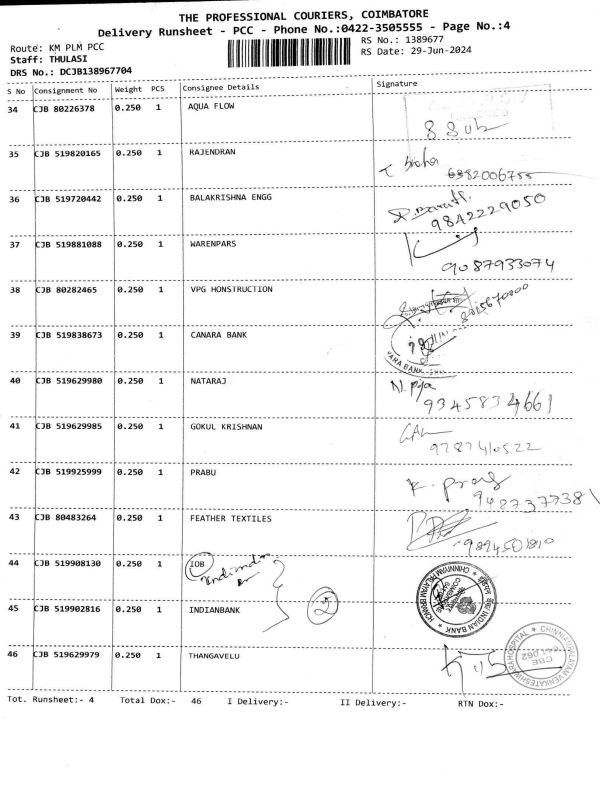 THE PROFESSIONAL COURIERS, COIMBATORE
Delivery Runsheet - PCC - Phone No.:0422-3505555 - Page No.:4
Route: KM PLM PCC
RS No.: 1389677
Staff: THULASI
RS Date: 29-Jun-2024
DRS No.: DCJB138967704
S No Consignment No Weight PCS Consignee Details Signature
34 CJB 80226378 0.250 1 AQUA FLOW
35 CJB 519820165 0.250 1 RAJENDRAN
6382006755
36 CJB 519720442 0.250 1 BALAKRISHNA ENGG
9842229050
37 CJB 519881088 0.250 1 WARENPARS
9087933074
38 CJB 80282465 0.250 1 VPG HONSTRUCTION
39 CJB 519838673 0.250 1 CANARA BANK
40 CJB 519629980 0.250 1 NATARAJ
9345834661
41 CJB 519629985 0.250 1 GOKUL KRISHNAN
9787410522
42 CJB 519925999 0.250 1 PRABU
9487377381
43 CJB 80483264 0.250 1 FEATHER TEXTILES
9894501810
44 CJB 519908130 0.250 1 IOB
2
45 CJB 519902816 0.250 1 INDIANBANK
INDIAN BANK
46 CJB 519629979 0.250 1 THANGAVELU
Tot. Runsheet:- 4 Total Dox:- 46 I Delivery:- II Delivery:- RTN Dox:-